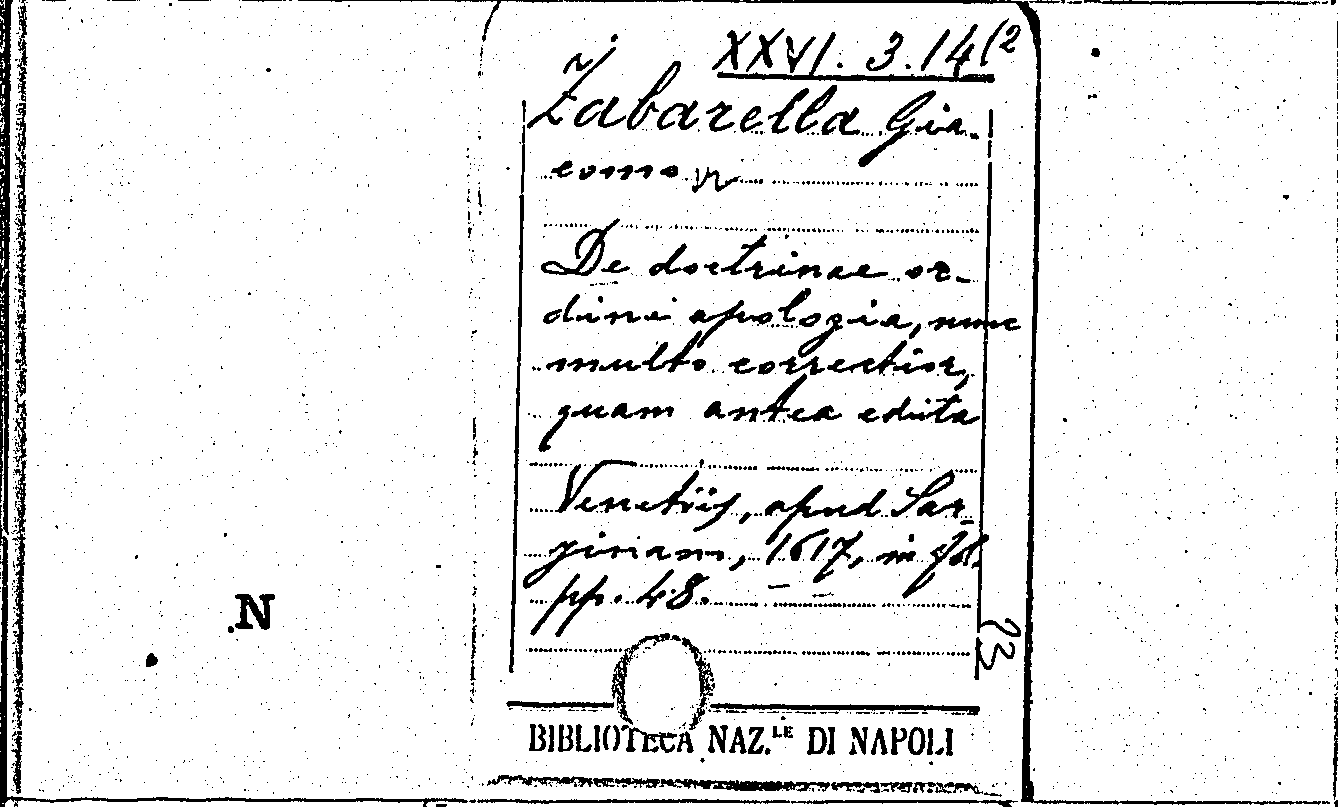 XXVI. 3. 14(2
Zabarella Gia-
como
De doctrinae or-
dine apologia, nunc
multo correctior,
quam antea edita
Venetiis, apud Sar-
zinam, 1617, in fol.
pp. 48.
N
BIBLIOTECA NAZ.LE DI NAPOLI